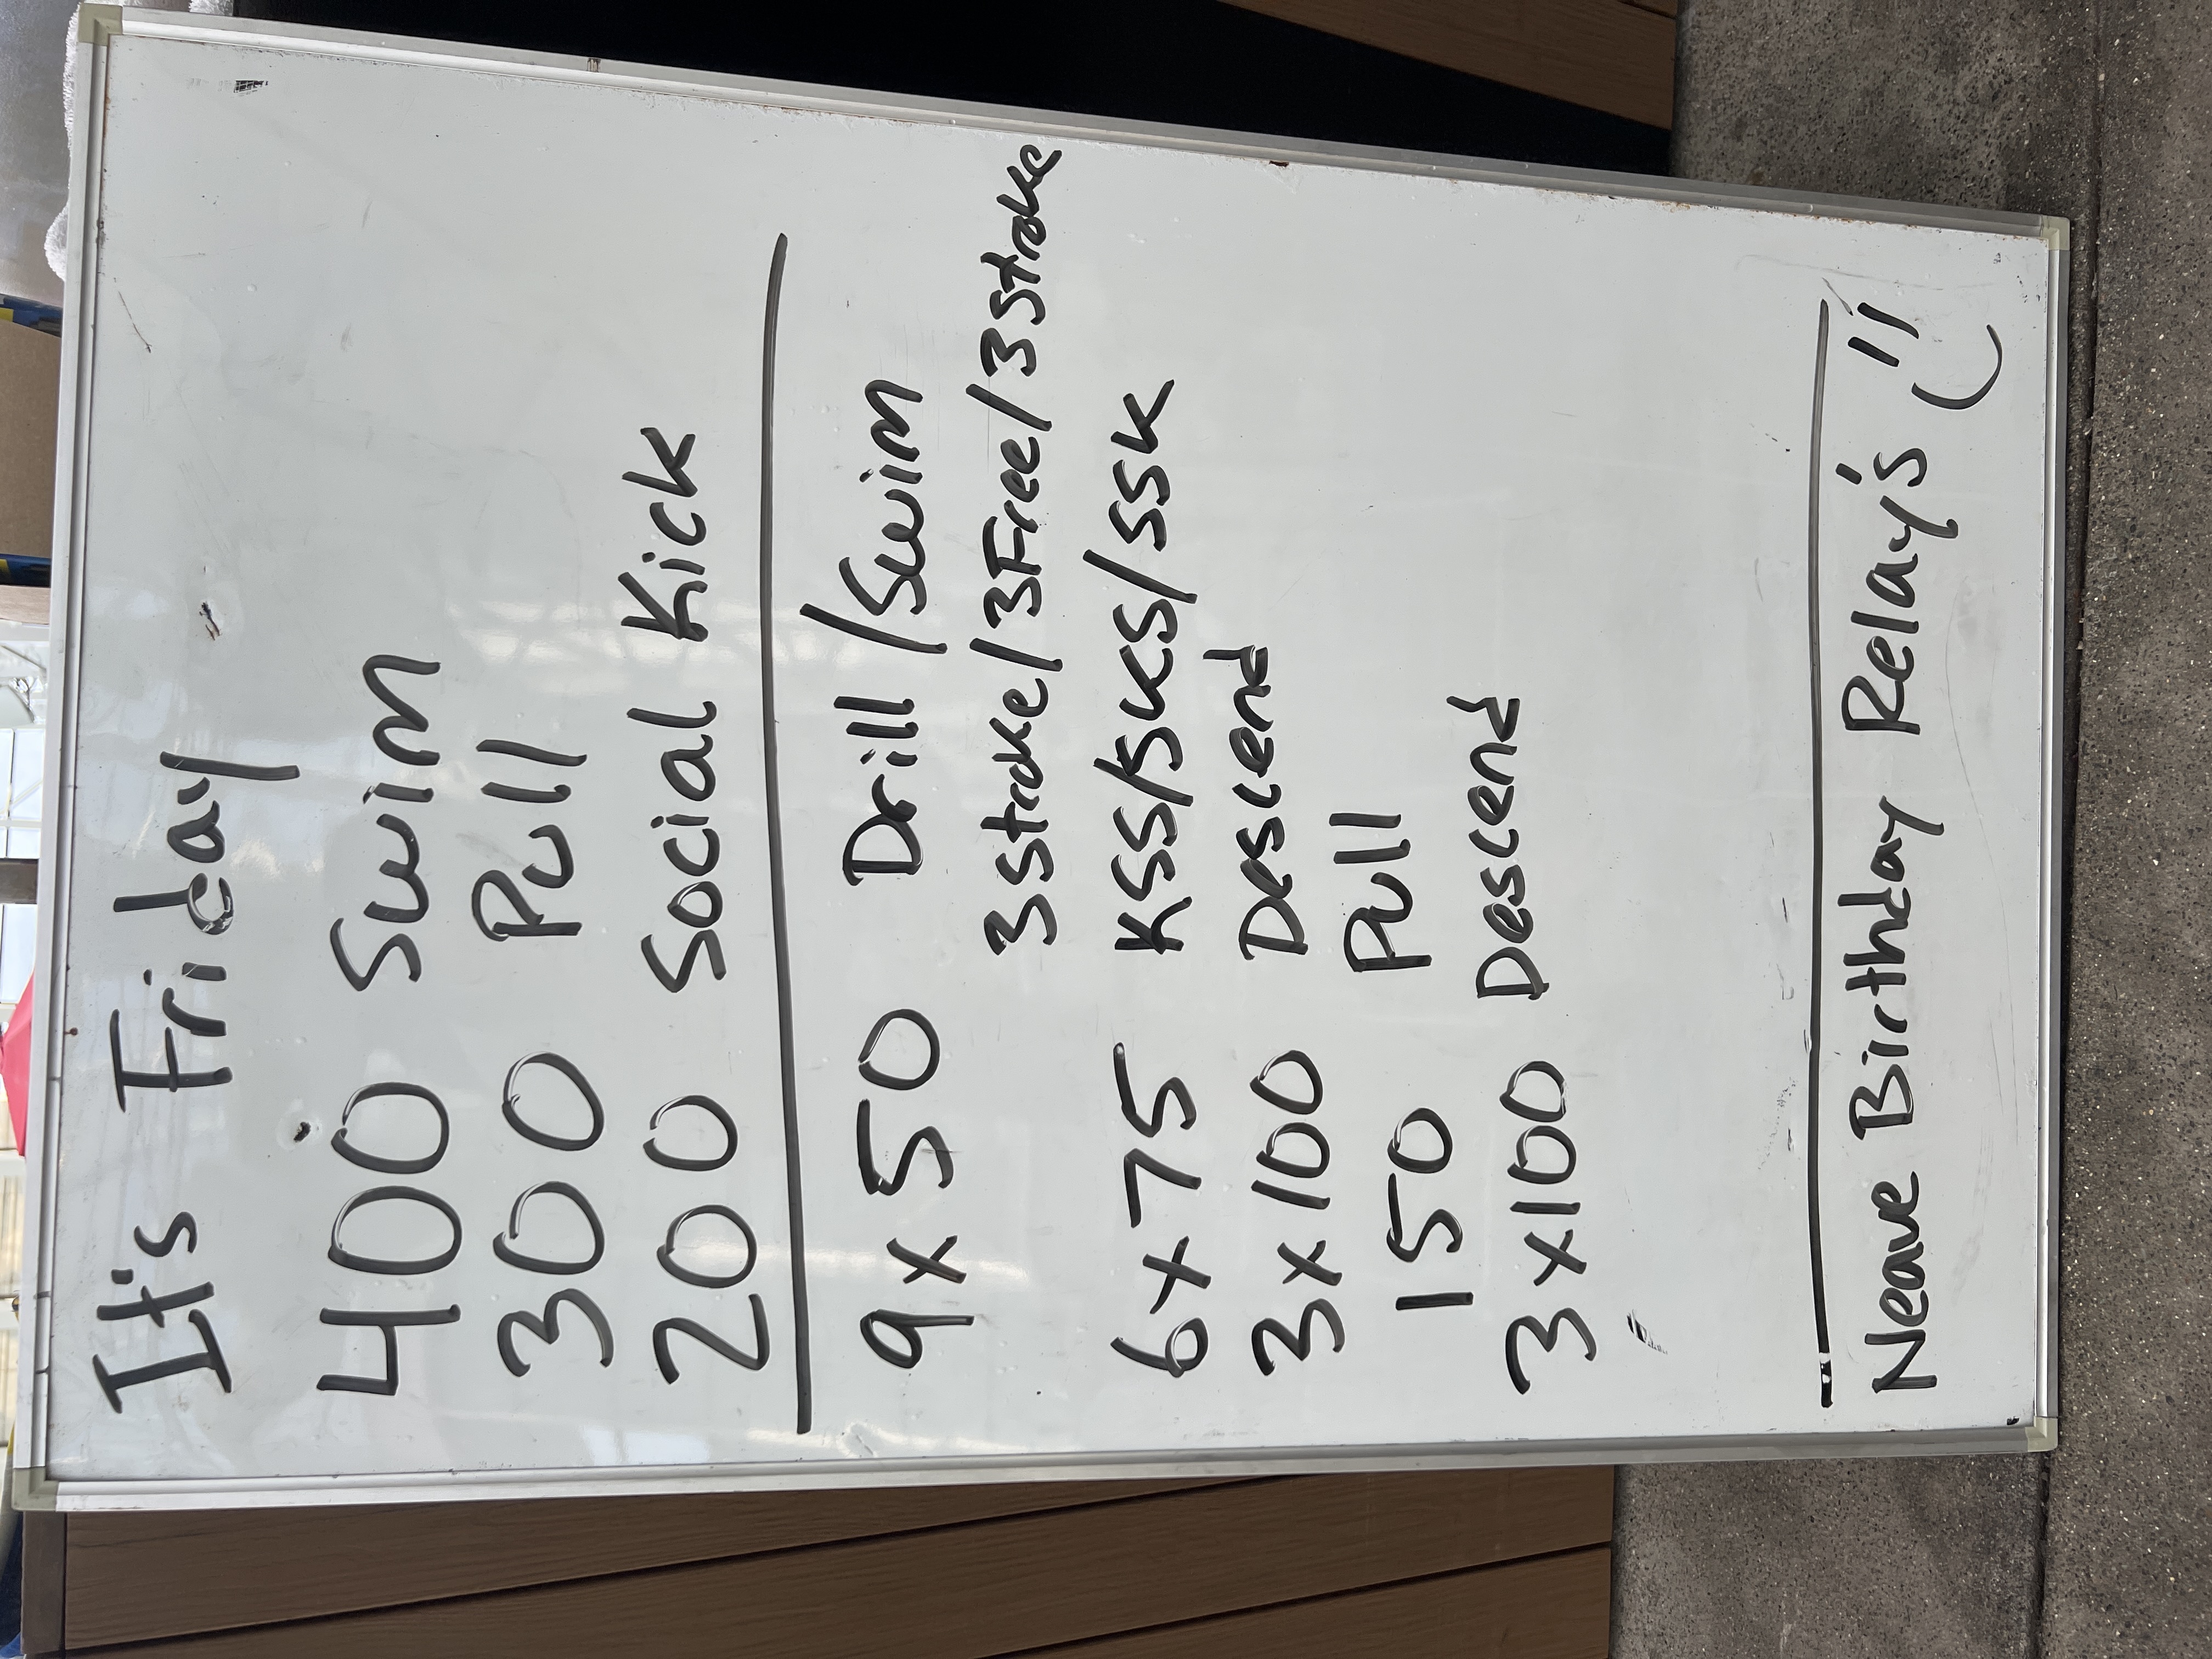 It's Friday
400 Swim
300 Pull
200 Social Kick
9x50 Drill/Swim
3Stroke/3Free/3Stroke
6x75 KSS/SKS/SSK
3x100 Descend
150 Pull
3x100 Descend
Neave Birthday Relay's